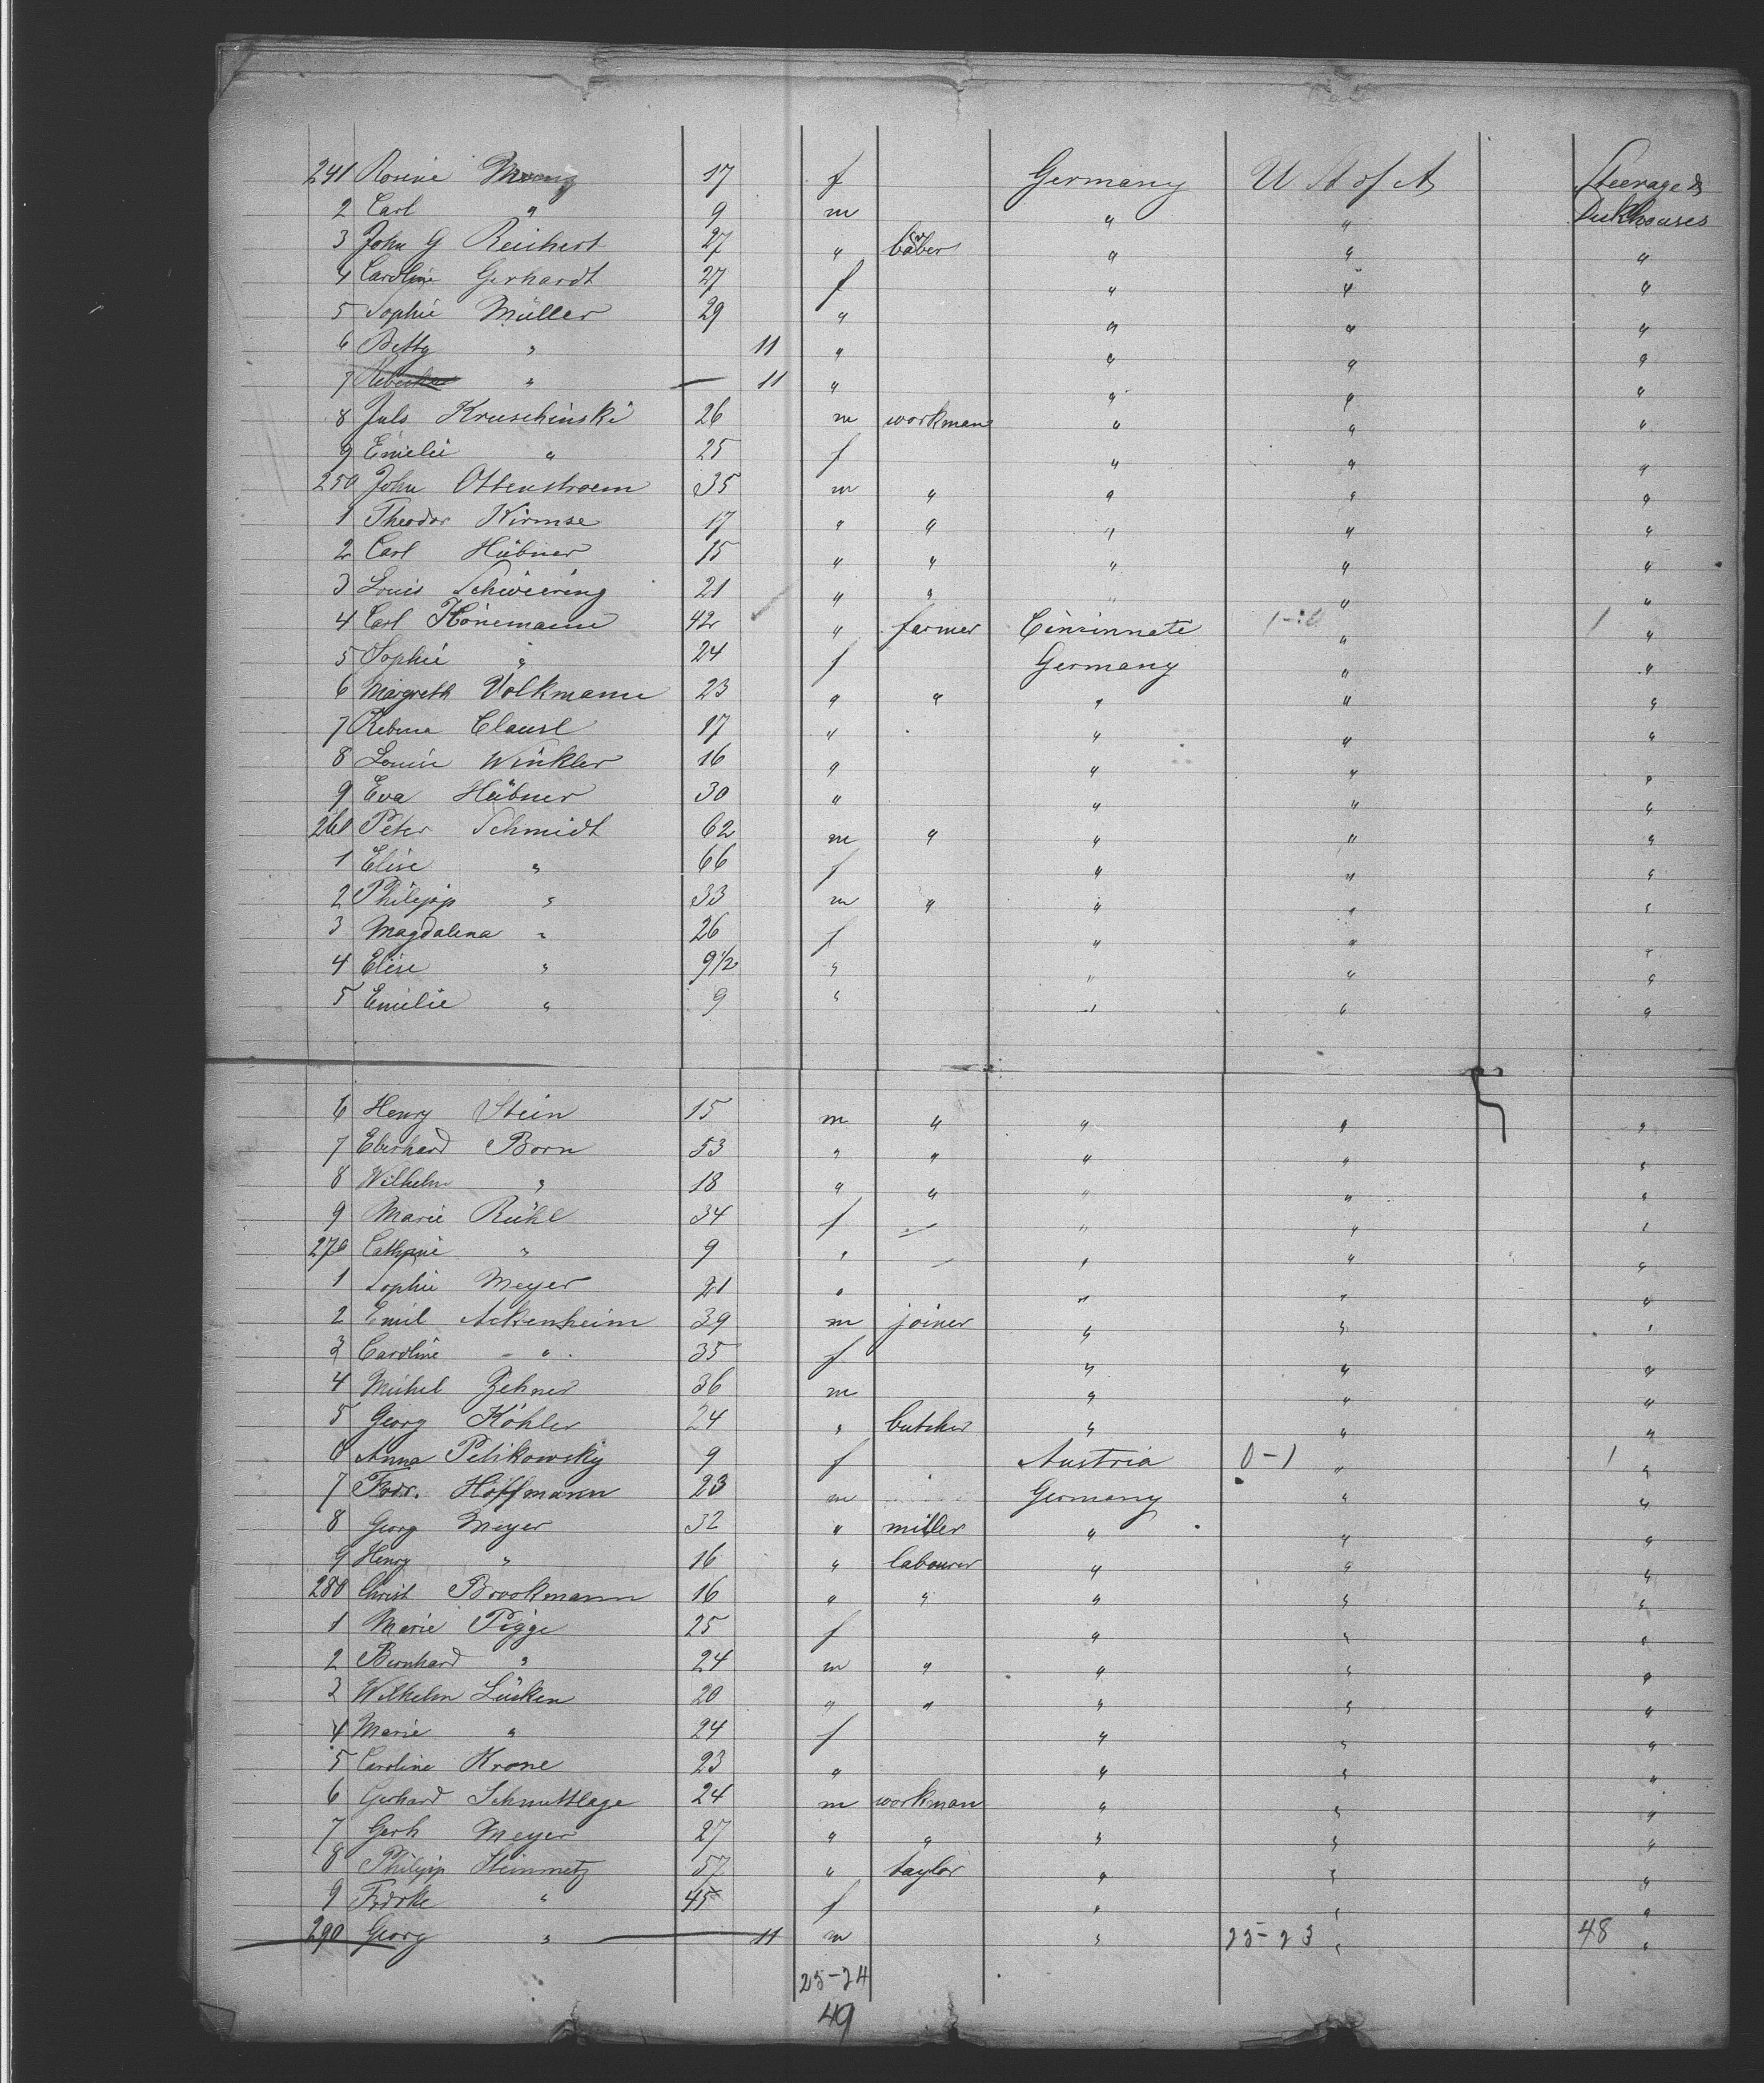 241 Rosine 17 f Germany U St of A Steerage &
2 Carl " 9 m " " Deckhouses
3 John G Reichert 27 " " " "
4 Caroline Gerhardt 27 f " " "
5 Sophie Müller 29 " " " "
6 Betty " 11 " " " "
7 " — 11 " " " "
8 Juls Kruschinski 26 m workman " " "
9 Emilie " 25 f " " "
250 John Ottenstroem 35 m " " " "
1 Theodor Kirmse 17 " " " " "
2 Carl Hübner 15 " " " " "
3 Louis Schwiering 21 " " " " "
4 Carl Könemann 42 " farmer Cincinnati 1-0 " 1 "
5 Sophie " 24 f Germany " "
6 Margreth Volkmann 23 " " " " "
7 Clausl 17 " " " "
8 Louise Winkler 16 " " " "
9 Eva Hübner 30 " " " "
260 Peter Schmidt 62 m " " " "
1 Elise " 66 f " " "
2 Philipp " 33 m " " " "
3 Magdalena " 26 f " " "
4 Elise " 9 1/2 " " " "
5 Emilie " 9 " " " "
6 Henry Stein 15 m " " " "
7 Eberhard Born 53 " " " " "
8 Wilhelm " 18 " " " " "
9 Marie Rühl 34 f — " " "
270 Cathrine " 9 " — " " "
1 Sophie Meyer 21 " " " "
2 Emil Ackenheim 39 m joiner " " "
3 Caroline " 35 f " " "
4 Michel Zehner 36 m " " "
5 Georg Köhler 24 " butcher " " "
6 Anna Petikowsky 9 f Austria 0-1 " 1 "
7 Fredr. Hoffmann 23 m Germany " "
8 Georg Meyer 32 " miller " " "
9 Henry " 16 " labourer " " "
280 Christ Brookmann 16 " " " " "
1 Marie Pigge 25 f " " "
2 Bernhard " 24 m " " " "
3 Wilhelm Lüsken 20 " " " " "
4 Marie " 24 f " " "
5 Caroline Krone 23 " " " "
6 Gerhard Schmuttlage 24 m workman " " "
7 Gerh Meyer 27 " " " " "
8 Philipp Steinmetz 57 " taylor " " "
9 " 45 f " " "
290 Georg " — 11 m " 25-23 " 48 "
25-24
49